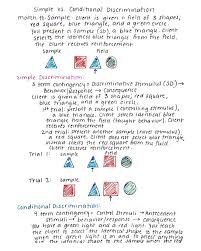 Simple vs. Conditional Discrimination
Match-to-Sample: client is given a field of 3 shapes,
red square, blue triangle, and a green circle.
You present a sample (SD), a blue triangle. Client
selects the identical blue triangle from the field,
the client receives reinforcement
sample field
Simple Discrimination:
3 term contingency = Discriminative Stimulus (SD) →
Behavior/Response → Consequence
Client is given a field of 3 shapes, red square,
blue triangle, and green circle.
1st trial: present a sample (controlling stimulus),
a blue triangle, client selects identical blue
triangle from the field (taught behavior). Client
receives reinforcement
2nd trial: present another sample (novel stimulus)
a red square. Client does not select blue triangle
instead client selects the identical red square,
the client receives reinforcement
sample field
Trial 1:
sample field
Trial 2:
Conditional Discrimination:
4 term contingency = Control Stimuli → Antecedent
stimuli → behavior/response → consequence
You have a green light and a red light. You teach
the client to select the identical shape to the sample
when the green light is on and to select anything